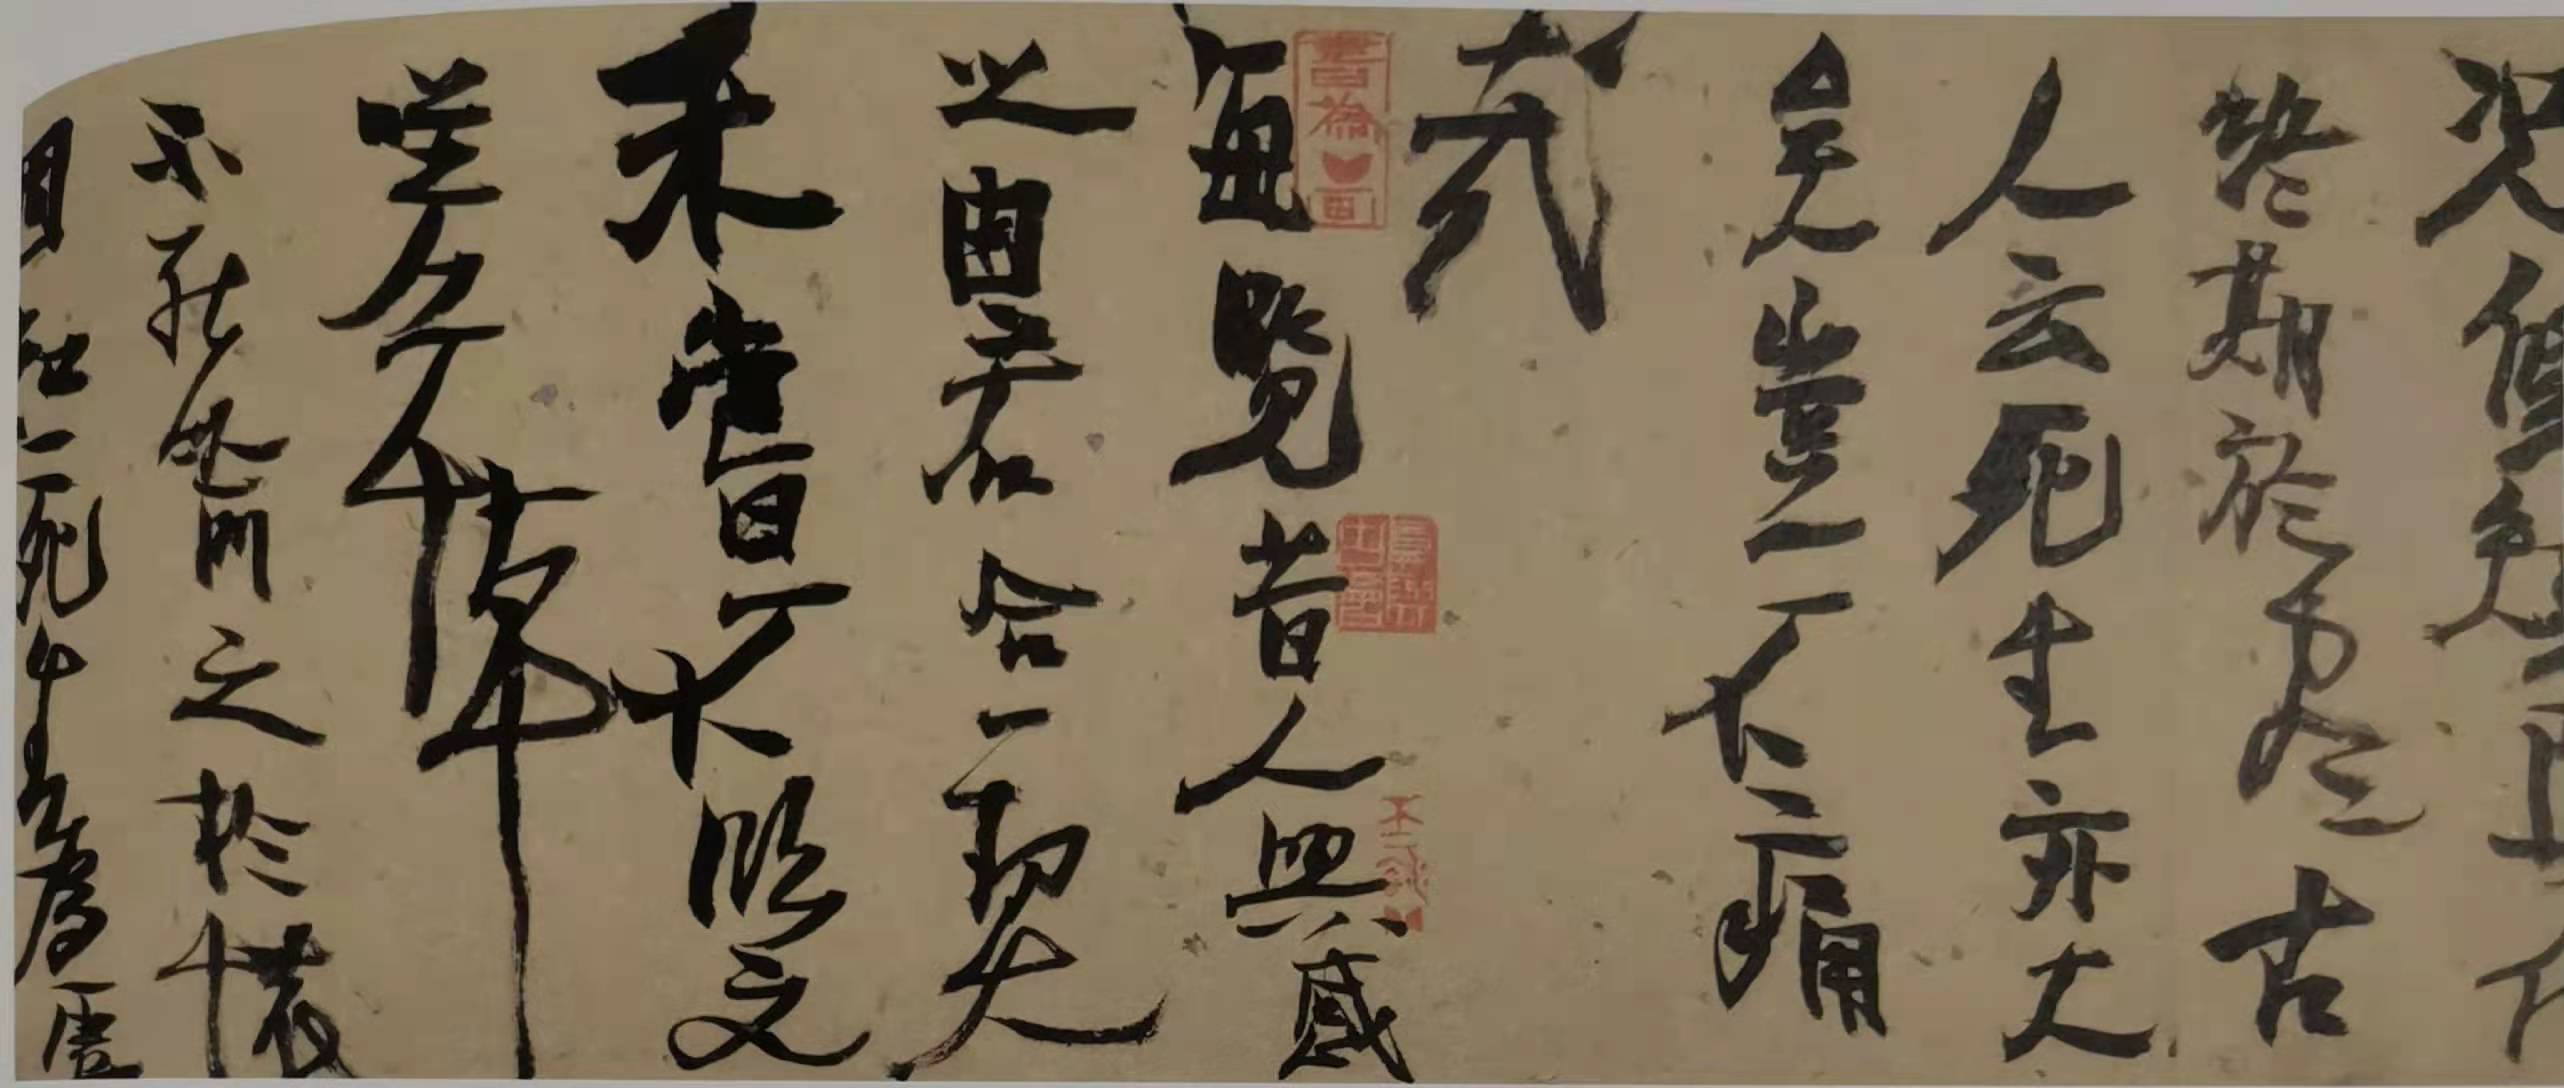 況脩短隨化
終期於盡古
人云死生亦大
矣豈不痛
哉
每覽昔人興感
之由若合一契
未嘗不臨文
嗟悼
不能喻之於懷
固知一死生為虛